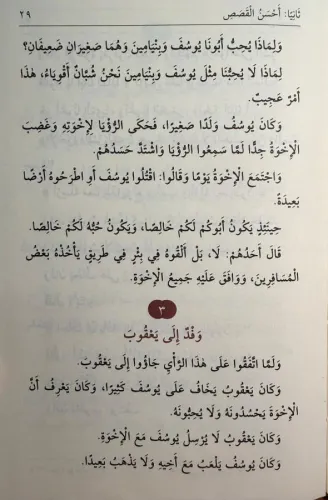 ثَانِيًا: أَحْسَنُ الْقَصَصِ ٢٩
وَلِمَاذَا يُحِبُّ أَبُونَا يُوسُفَ وَبِنْيَامِينَ وَهُمَا صَغِيرَانِ ضَعِيفَانِ؟
لِمَاذَا لَا يُحِبُّنَا مِثْلَ يُوسُفَ وَبِنْيَامِينَ نَحْنُ شُبَّانٌ أَقْوِيَاءُ، هٰذَا
أَمْرٌ عَجِيبٌ.
وَكَانَ يُوسُفُ وَلَدًا صَغِيرًا، فَحَكَى الرُّؤْيَا لِإِخْوَتِهِ وَغَضِبَ
الْإِخْوَةُ جِدًّا لَمَّا سَمِعُوا الرُّؤْيَا وَاشْتَدَّ حَسَدُهُمْ.
وَاجْتَمَعَ الْإِخْوَةُ يَوْمًا وَقَالُوا: اقْتُلُوا يُوسُفَ أَوِ اطْرَحُوهُ أَرْضًا
بَعِيدَةً.
حِينَئِذٍ يَكُونُ أَبُوكُمْ لَكُمْ خَالِصًا، وَيَكُونُ حُبُّهُ لَكُمْ خَالِصًا.
قَالَ أَحَدُهُمْ: لَا، بَلْ أَلْقُوهُ فِي بِئْرٍ فِي طَرِيقٍ يَأْخُذْهُ بَعْضُ
الْمُسَافِرِينَ، وَوَافَقَ عَلَيْهِ جَمِيعُ الْإِخْوَةِ.
٣
وَفْدٌ إِلَى يَعْقُوبَ
وَلَمَّا اتَّفَقُوا عَلَى هٰذَا الرَّأْيِ جَاؤُوا إِلَى يَعْقُوبَ.
وَكَانَ يَعْقُوبُ يَخَافُ عَلَى يُوسُفَ كَثِيرًا، وَكَانَ يَعْرِفُ أَنَّ
الْإِخْوَةَ يَحْسُدُونَهُ وَلَا يُحِبُّونَهُ.
وَكَانَ يَعْقُوبُ لَا يُرْسِلُ يُوسُفَ مَعَ الْإِخْوَةِ.
وَكَانَ يُوسُفُ يَلْعَبُ مَعَ أَخِيهِ وَلَا يَذْهَبُ بَعِيدًا.